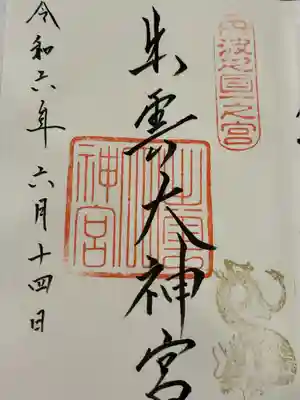 丹波國一之宮
出雲大神宮
出雲大神宮
令和六年六月十四日